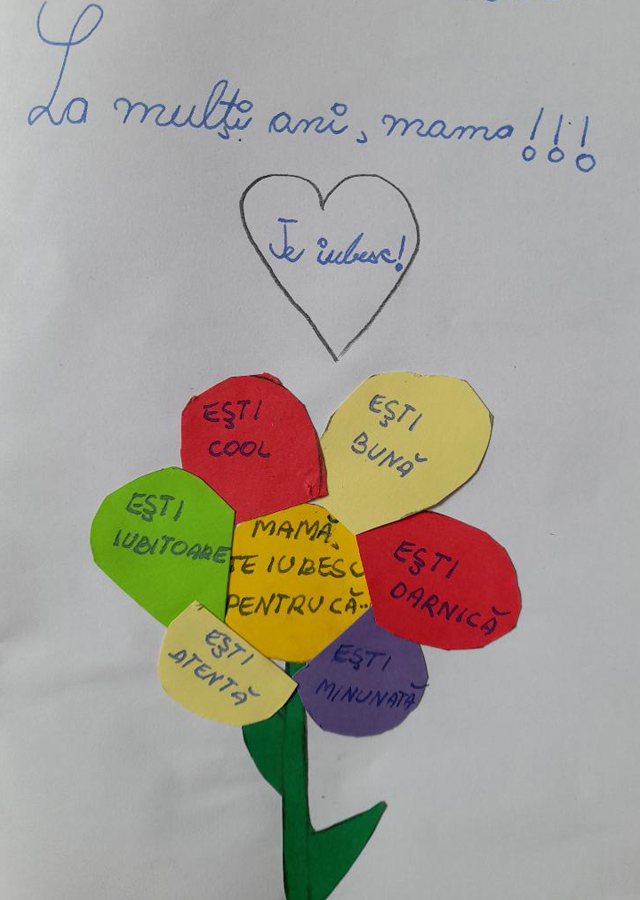 La mulți ani, mama!!!
Te iubesc!
EȘTI
COOL
EȘTI
BUNĂ
EȘTI
IUBITOARE
MAMĂ,
TE IUBESC
PENTRU CĂ..
EȘTI
DARNICĂ
EȘTI
ATENTĂ
EȘTI
MINUNATĂ